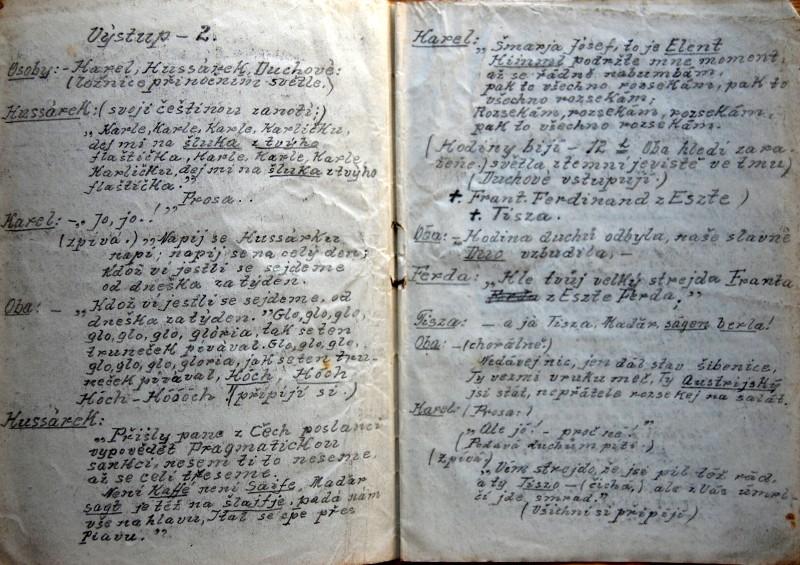 Výstup – 2.
Osoby: – Karel, Hussárek, Duchové:
(ložnice při nočním světle.)
Hussárek: (svojí češtinou zanotí:)
„Karle, Karle, Karle, Karlíčku,
dej mi na šluka z tvýho
flaštička, Karle, Karle, Karle
Karlíčku, dej mi na šluka z tvýho
flaštička."
Prosa..
Karel: – „Jo, jo..!"
(zpívá.) „Napij se Hussárku
napi; napij se na celý den;
kdož ví jestli se sejdeme
od dneška za týden.
Oba: – „Kdož ví jestli se sejdeme, od
dneška za týden. "Glo, glo, glo,
glo, glo, glo, glória, tak se ten
truneček pívával. Glo, glo, glo,
glo, glo, glo, gloria, jak se ten tru-
neček pívával, Hoch, Hoch
Hoch – Hóóóch! (připíjí si.)
Hussárek:
„Přišly pane z Čech poslanci
vypovědět Pragmatickou
sankci, nesem ti to neseme,
až se celí třeseme.
Není Kaffé není Saife, Maďár
sagt je též na šlajfje, padá nám
vše na hlavu, Ital se cpe přes
Piavu."
Karel:
„Šmarja Józef, to je Elent
Himml podržte mne moment,
až se řádně nabumbám,
pak to všechno rozsekám, pak to
všechno rozsekám;
Rozsekám, rozsekám, rozsekám,
pak to všechno rozsekám.
(Hodiny bijí – 12 Oba hledí zara-
ženě.) světla ztemní jeviště ve tmu)
(Duchové vstupují.)
†. Frant. Ferdinand z Eszte)
†. Tisza.
Oba: – Hodina duchů odbyla, naše slavné
Duo vzbudila, –
Ferda: „Hle tvůj velký strejda Franta
z Eszte Ferda."
Tisza: – a já Tisza, Maďár, ságen berla!
Oba: – (chorálně.)
Nedávej nic, jen dál stav šibenice,
Ty vezmi v ruku meč, Ty Austrijský
jsi stát, nepřátele rozsekej na salát.
Karel: (Prosa:)
„Ale jó! – proč ne!"
(Podává duchům píti.)
(zpívá)
„Vím strejdo, že jsi pil též rád,
a ty Tiszo – (čichá,) ale z Vás umrl-
čí jde smrad."
(Všichni si připíjí)